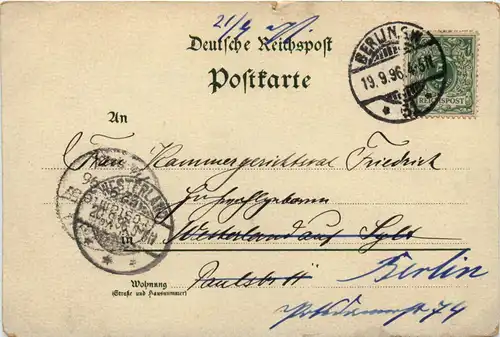 21/9
Deutsche Reichspost
Postkarte
BERLIN, S.W.
19.9.96.4-5N.
REICHSPOST
An
Frau Kammergerichtsrat Friedrich
WESTERLAND
in Westerland auf Sylt
Berlin
Wohnung
(Straße und Hausnummer)
Potsdamerstr 74